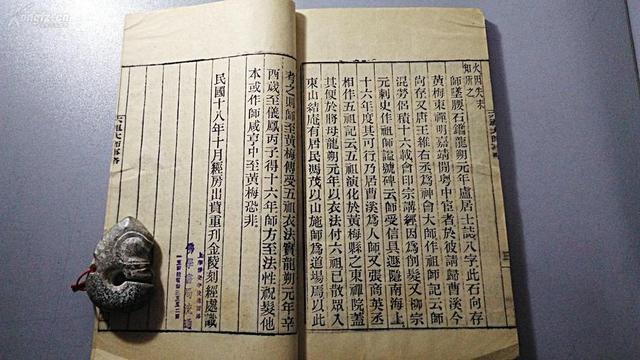 火因失未
知所之
師墜腰石鐫龍朔元年盧居士誌八字此石向存
黃梅東禪明嘉靖閒粵中宦者於彼請歸曹溪今
向存又唐王維右丞為神會大師作祖師記云師
混勞侶積十六載會印宗講經因為削髮又柳宗
元刺史作祖師謚號碑云師受信具遯隱南海上
十六年度其可行乃居曹溪為人師又張商英丞
相作五祖記云五祖演化於黃梅縣之東禪院蓋
其便於將母龍朔元年以衣法付六祖已散眾入
東山結庵有居民馮茂以山施師為道場焉以此
考之則師至黃梅傳受五祖衣法實龍朔元年辛
酉歲至儀鳳丙子得十六年師方至法性祝髮他
本或作師咸亨中至黃梅恐非
民國十八年十月經房出資重刊金陵刻經處識
佛學書局流通